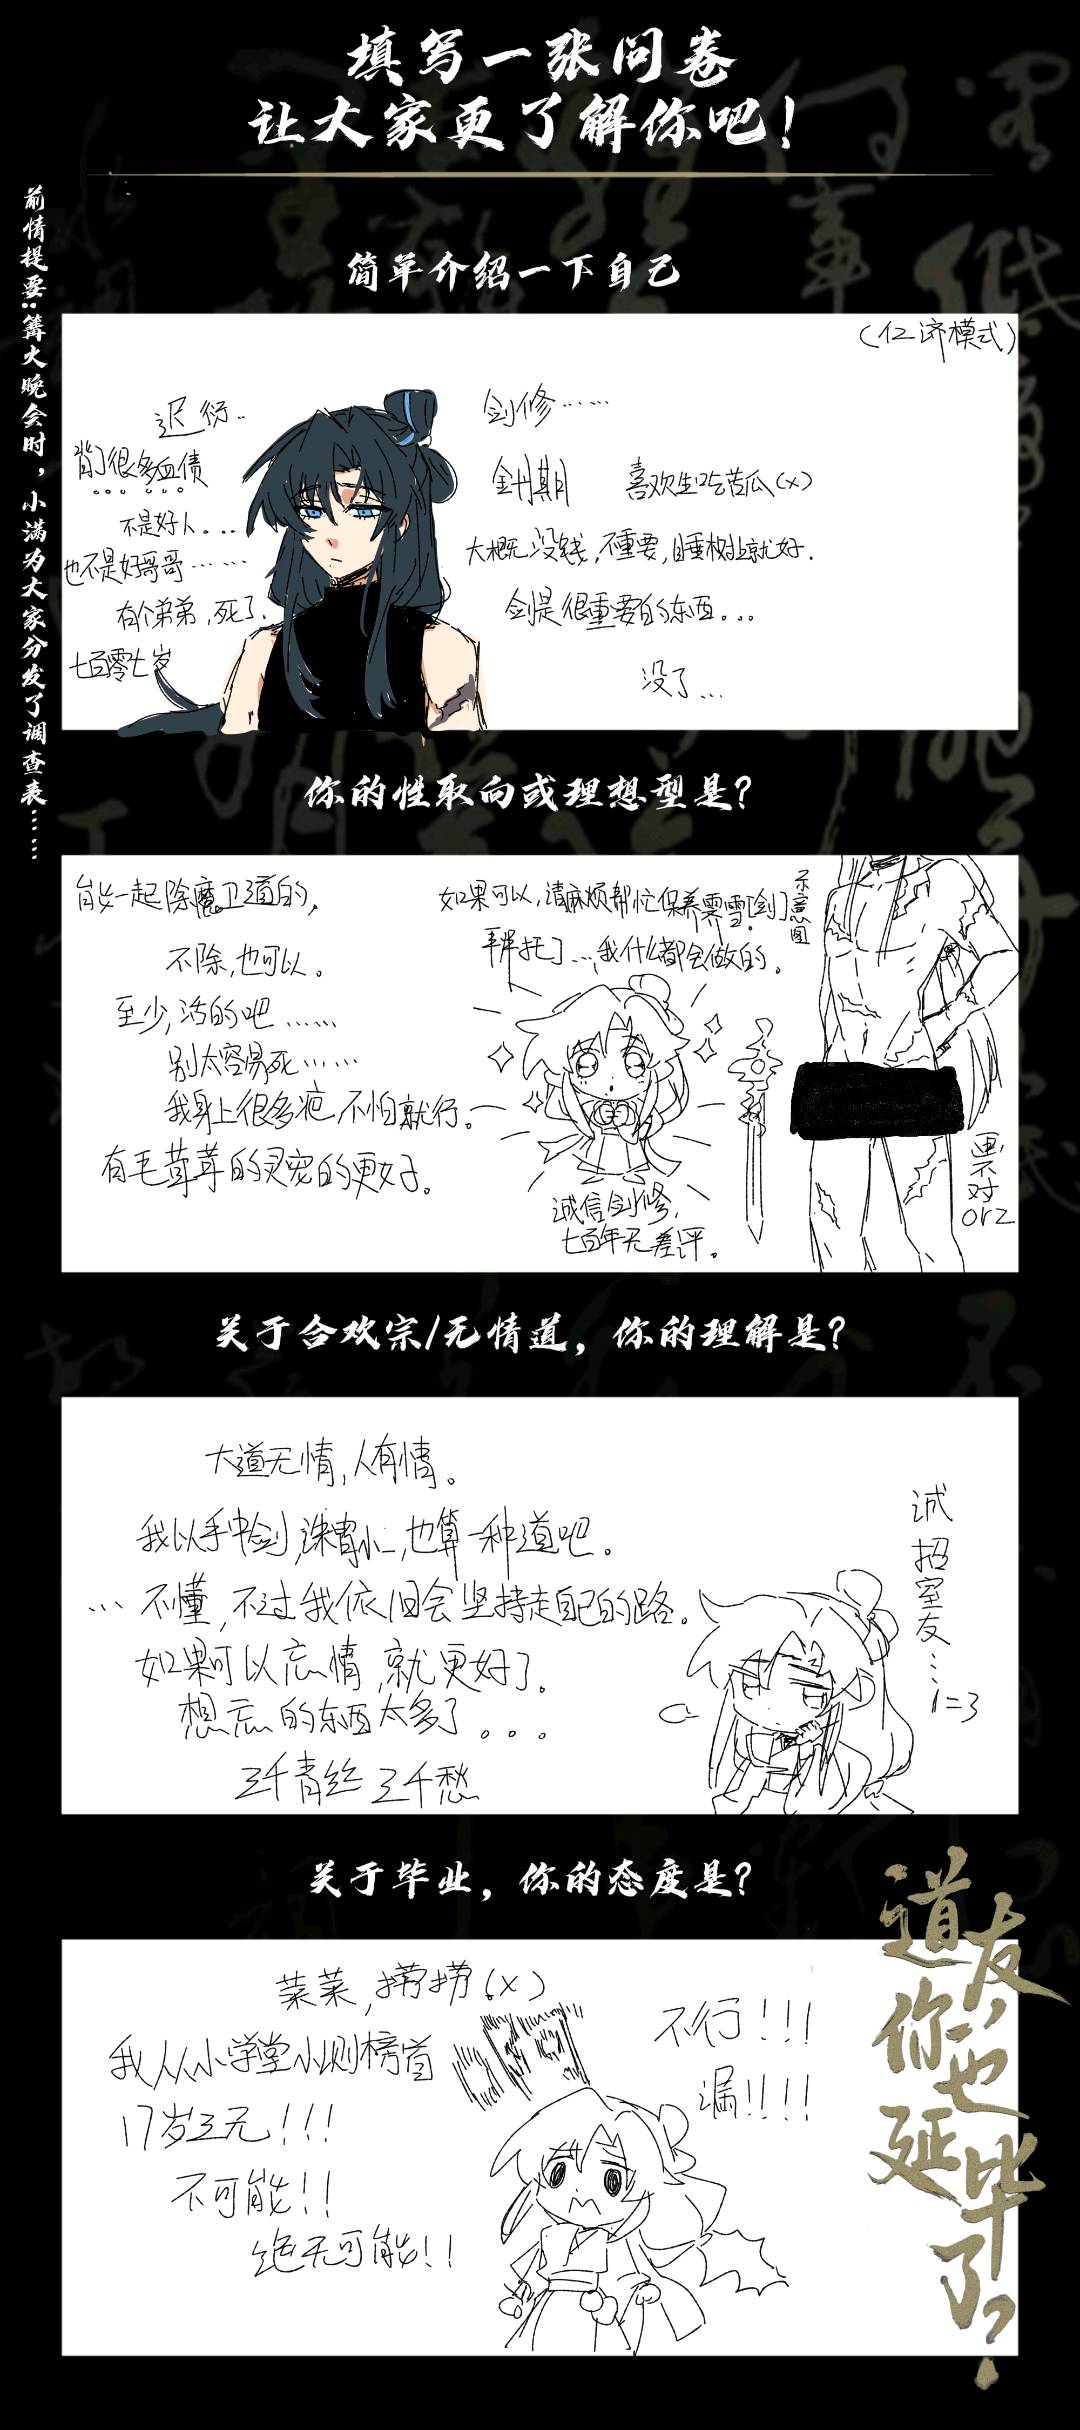 填写一张问卷
让大家更了解你吧！
前情提要：篝火晚会时，小满为大家分发了调查表……
简单介绍一下自己
（仁济模式）
迟衍..
背了很多血债
......
不是好人...
也不是好哥哥……
有个弟弟，死了.
七百零七岁
剑修……
金丹期
喜欢生吃苦瓜(x)
大概无没钱，不重要，睡树上就好.
剑是很重要的东西...
没了...
你的性取向或理想型是？
能一起除魔卫道的，
不除，也可以。
至少，活的吧……
别太容易死……
我身上很多疤，不怕就行。
有毛茸茸的灵宠的更好。
如果可以，请麻烦帮忙保养霁雪[剑]
拜托了...，我什么都会做的。
诚信剑修，
七百年无差评。
示意图
画不对
orz
关于合欢宗/无情道，你的理解是？
大道无情，人有情。
我以手中剑，诛宵小，也算一种道吧。
...不懂，不过我依旧会坚持走自己的路。
如果可以忘情，就更好了。
想忘的东西太多了。。。
三千青丝三千愁
诚招室友...1=3
关于毕业，你的态度是？
菜菜，捞捞(x)
我从小学堂小测榜首
17岁三元！！！
不可能！！
绝无可能！！
不行！！！
漏！！！！
道友，你也延毕了？